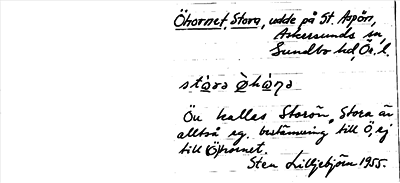 Öhornet, Stora, udde på St. Aspön,
Askersunds sn,
Sundbo hd, Ör. l.
Ön kallas Storön, Stora är
alltså eg. bestämning till Ö, ej
till (Ö)hornet.
Sten Lilljebjörn 1955.